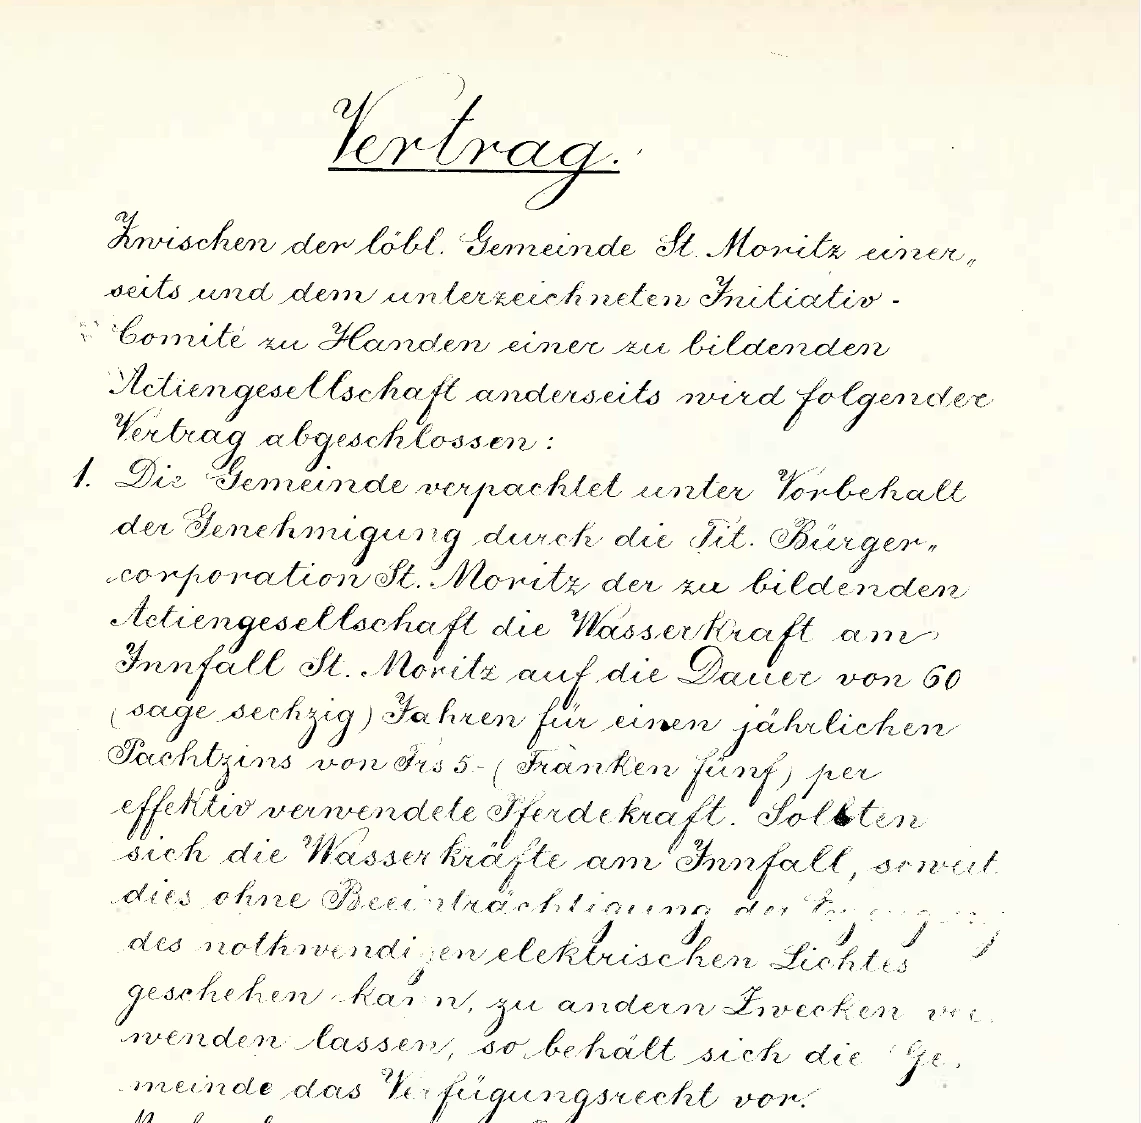 Vertrag.
Zwischen der löbl. Gemeinde St. Moritz einer„
seits und dem unterzeichneten Initiativ-
Comité zu Handen einer zu bildenden
Actiengesellschaft anderseits wird folgender
Vertrag abgeschlossen:
1. Die Gemeinde verpachtet unter Vorbehalt
der Genehmigung durch die Tit. Bürger„
corporation St. Moritz der zu bildenden
Actiengesellschaft die Wasserkraft am
Innfall St. Moritz auf die Dauer von 60
(sage sechzig) Jahren für einen jährlichen
Pachtzins von Frs 5- (Franken fünf) per
effektiv verwendete Pferdekraft. Sollten
sich die Wasserkräfte am Innfall, soweit
dies ohne Beeinträchtigung der
des nothwendigen elektrischen Lichtes
geschehen kann, zu andern Zwecken ver
wenden lassen, so behält sich die Ge-
meinde das Verfügungsrecht vor.